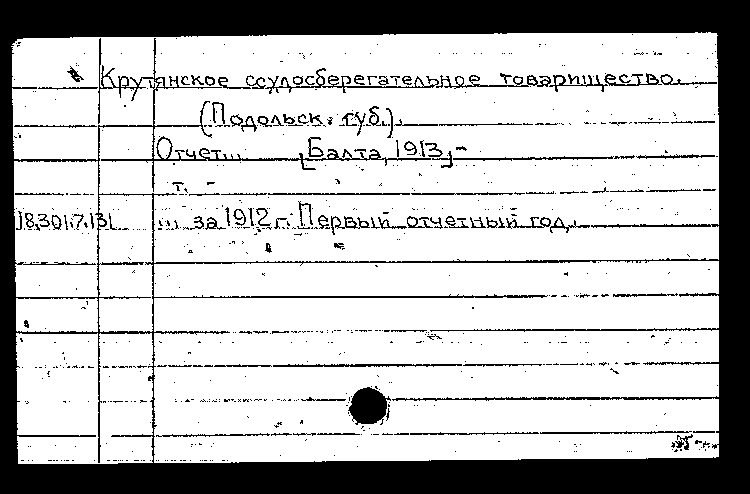 Крутянское ссудосберегательное товарищество.
(Подольск. губ.).
Отчет... [Балта, 1913]-
т. -
18.301.7.131 ... за 1912 г. Первый отчетный год.